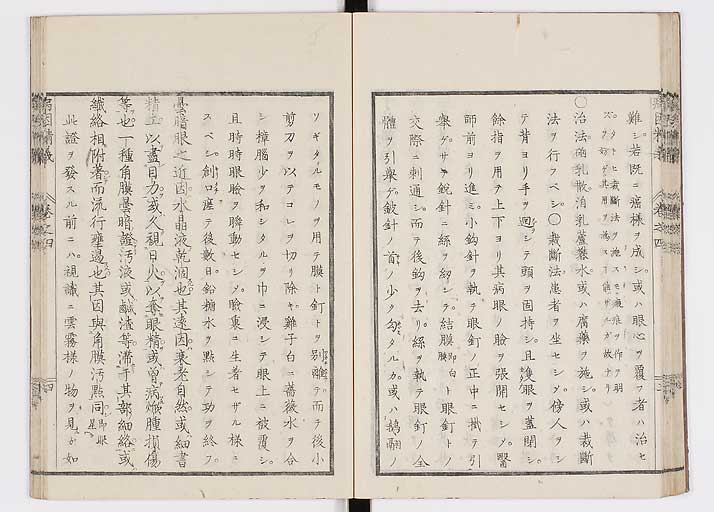 難シ若既ニ瘢様ヲ成シ或ハ眼心ヲ覆フ者ハ治セ
○治法硇乳散消乳蘆薈水或ハ腐藥ヲ施シ或ハ裁斷
法ヲ行フベシ○裁斷法患者ヲ坐セシメ傍人ヲシ
テ背ヨリ手ヲ廻シテ頭ヲ固持シ且護眼ヲ蓋閉シ
餘指ヲ用テ上下ヨリ其病眼ノ瞼ヲ張開セシメ醫
師前ヨリ進ミ小鈎針ヲ執テ眼釘ノ正中ニ掛テ引
舉ゲサキ鋭針ニ綵ヲ紉シテ結膜即白膜ト眼釘トノ
交際ニ刺通シ而テ後鈎ヲ去リ綵ヲ執テ眼釘ノ全
體ヲ引舉ゲ鈹針ノ首ノ少ク勾タルカ或ハ鵝翮ノ
ソギタルモノヲ用テ膜ト釘トヲ剥離テ而テ後小
剪刀ヲ以テコレヲ切リ除キ雞子白ニ薔薇水ヲ合
シ樟腦少ヲ和シタルヲ巾ニ浸シテ眼上ニ被覆シ
且時時眼瞼ヲ瞬動セシメ瞼裏ニ生着セザル様ニ
スベシ創口瘥テ後數日鉛糖水ヲ點シテ功ヲ終フ
曇暗眼之近因水晶液乾涸也其遠因衰老自然或細書
精工以盡目力或人視日火以奪眼精或曾病焮腫損傷
等也一種角膜曇暗證汚液或鹹渣等滯于其部細絡或
纖絡相附著而流行壅遏也其因與角膜汚點同即眼星
此證ヲ發スル前ニハ視識ニ雲霧様ノ物ヲ見ルガ如
卷之四
四